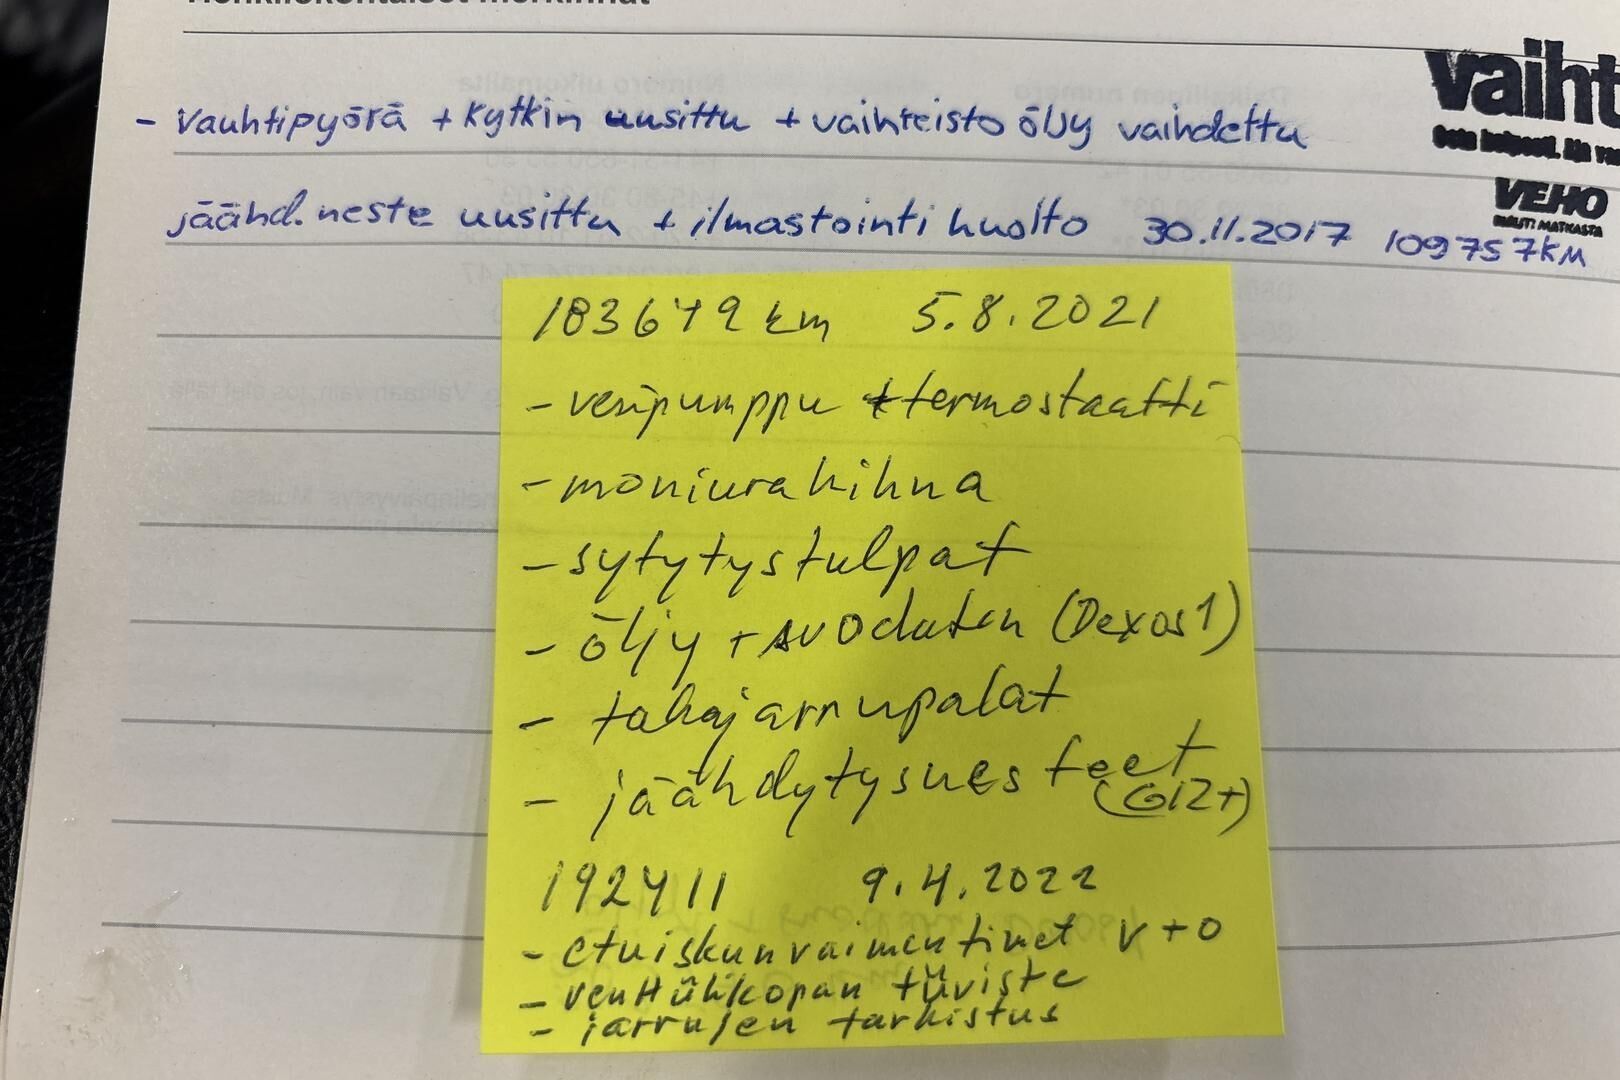 Henkilökohtaiset merkinnät
- Vauhtipyörä + Kytkin uusittu + vaihteisto öljy vaihdettu
jäähd. neste uusittu + ilmastointi huolto 30.11.2017 109757KM
vaiht
VEHO
183679 km 5.8.2021
- vesipumppu + termostaatti
- moniurahihna
- sytytystulpat
- öljy + suodatin (Dexos1)
- takajarrupalat
- jäähdytysnesteet
(G12+)
192411 9.4.2022
- etuiskunvaimentimet v + o
- venttiilikopan tiiviste
- jarrujen tarkistus